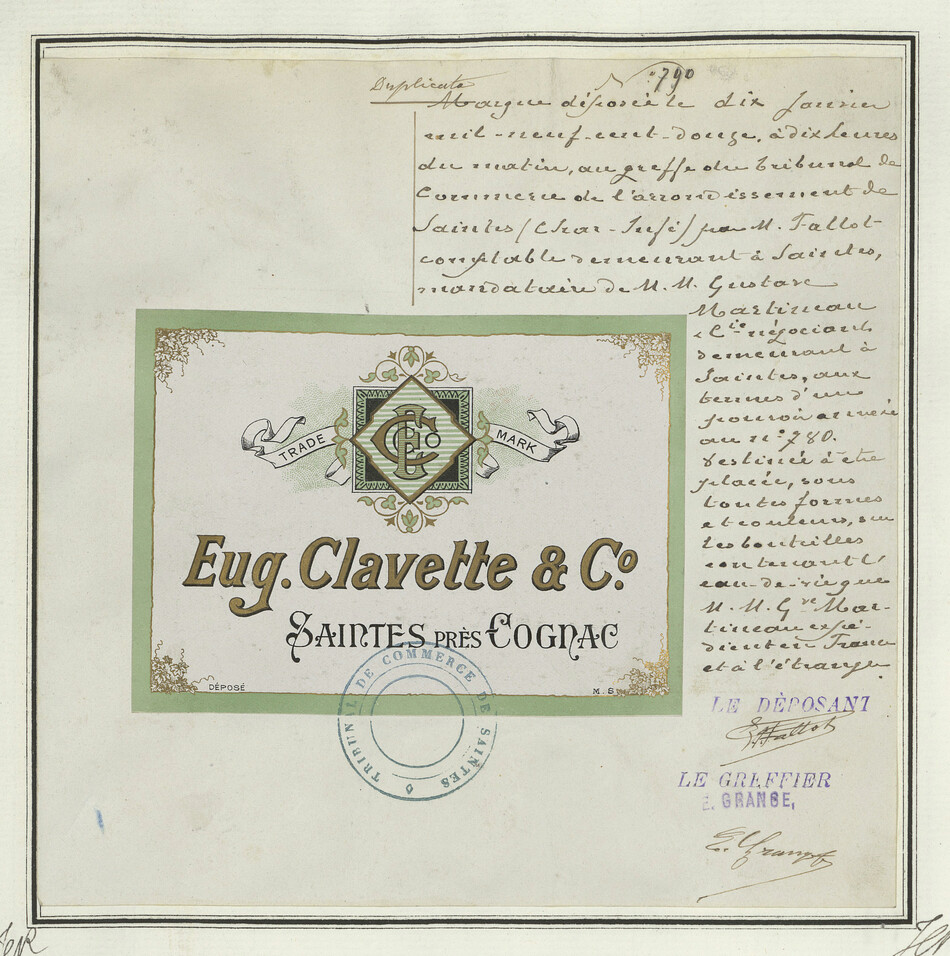 Duplicata
790
Marque déposée le dix Janvier
mil-neuf-cent-douze, à dix heures
du matin, au greffe du tribunal de
Commerce de l'arrondissement de
Saintes (Char-Infre) par M. Fallot
comptable demeurant à Saintes,
mandataire de M. M. Gustave
Martineau
& Cie négociants
demeurant à
Saintes, aux
termes d'un
pouvoir annexé
au n° 780.
Destinée à être
placée, sous
toutes formes
et couleurs, sur
les bouteilles
contenant l'
eau-de-vie que
M. M. Gve Mar-
tineau expé-
dient en France
et à l'étranger
TRADE MARK
Eug. Clavette & Co
SAINTES PRÈS COGNAC
DÉPOSÉ
M. S
TRIBUNAL DE COMMERCE DE SAINTES
LE DÉPOSANT
Fallot
LE GREFFIER
E. GRANGE,
E. Grange